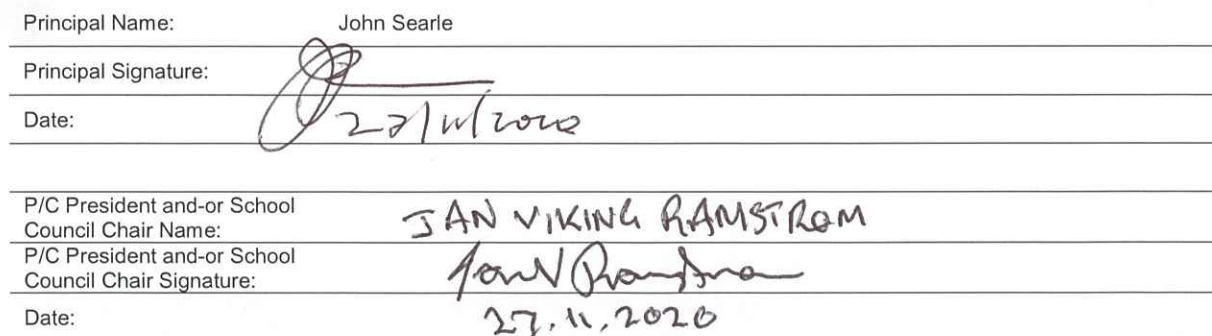 Principal Name: John Searle
Principal Signature:
Date: 27/11/2020
P/C President and-or School
Council Chair Name: JAN VIKING RAMSTROM
P/C President and-or School
Council Chair Signature: Jan V Ramstrom
Date: 27.11.2020